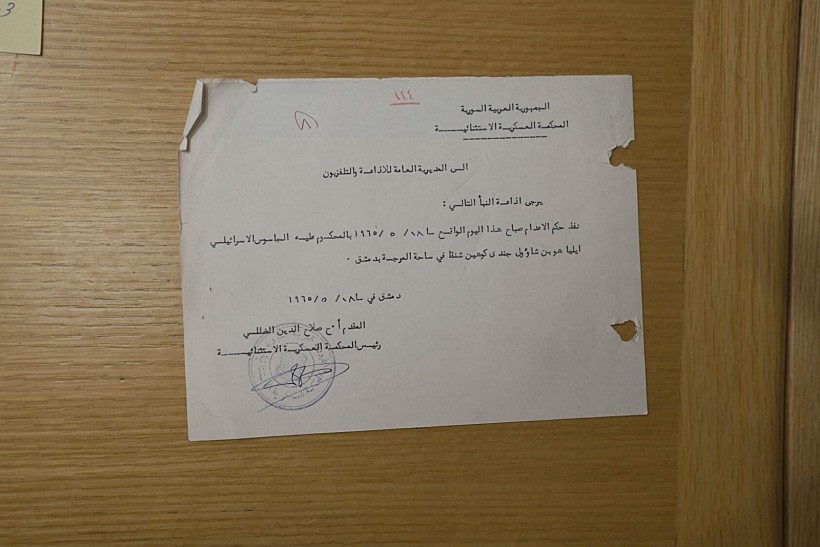 3
١٤٤
الجمهورية العربية السورية
المحكمة العسكرية الاستثنائيـــــة
الى المديرية العامة للاذاعة والتلفزيون
يرجى اذاعة النبأ التالي :
نفذ حكم الاعدام صباح هذا اليوم الواقع في ١٨/ ٥ /١٩٦٥ بالمحكوم عليه الجاسوس الاسرائيلي
ايليا هو بن شاؤول جندى كوهين شنقا في ساحة المرجة بدمشق .
دمشق في ١٨/ ٥ /١٩٦٥
المقدم أ.ح صلاح الدين الضللي
رئيس المحكمة العسكرية الاستثنائيـــــة